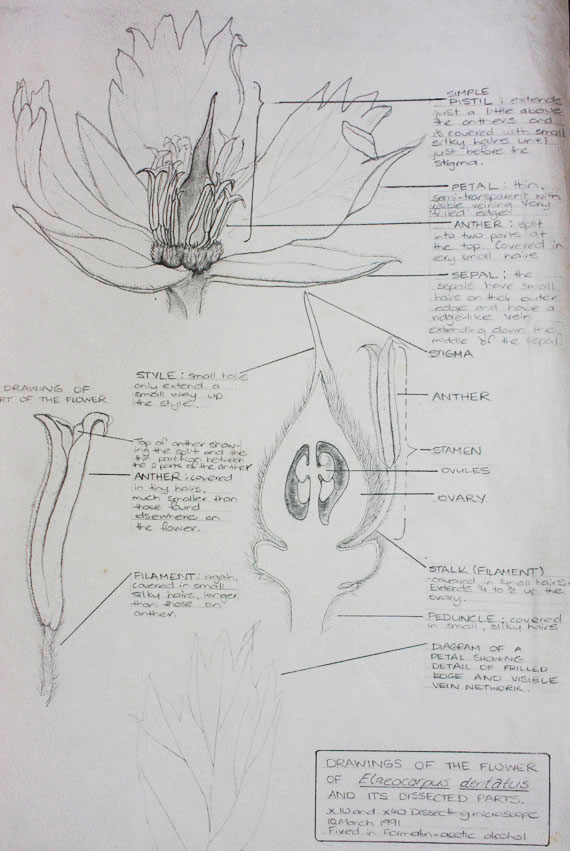 SIMPLE
PISTIL : extends
just a little above
the anthers and
is covered with small
silky hairs until
just before the
stigma.
PETAL : thin,
semi-transparent with
visible veining. Very
frilled edges
ANTHER : split
into two parts at
the top. Covered in
very small hairs
SEPAL : the
sepals have small
hairs on their outer
edge and have a
ridge-like vein
extending down the
middle of the sepal.
STIGMA
STYLE : small hairs
only extend a
small way up
the style.
DRAWING OF
RT OF THE FLOWER
ANTHER
STAMEN
OVULES
OVARY
Top of anther show-
ing the split and the
partition between
the 2 parts of the anther
ANTHER : covered
in tiny hairs,
much smaller than
those found
elsewhere on
the flower.
FILAMENT : again,
covered in small
silky hairs, longer
than those on
anther.
STALK (FILAMENT)
-covered in small hairs.
Extends ¼ to ½ up the
ovary.
PEDUNCLE : covered
in small, silky hairs
DIAGRAM OF A
PETAL SHOWING
DETAIL OF FRILLED
EDGE AND VISIBLE
VEIN NETWORK.
DRAWINGS OF THE FLOWER
OF Elaeocarpus dentatus
AND ITS DISSECTED PARTS.
x10 and x40 Dissecting microscope
March 1991
Fixed in Formalin-acetic alcohol